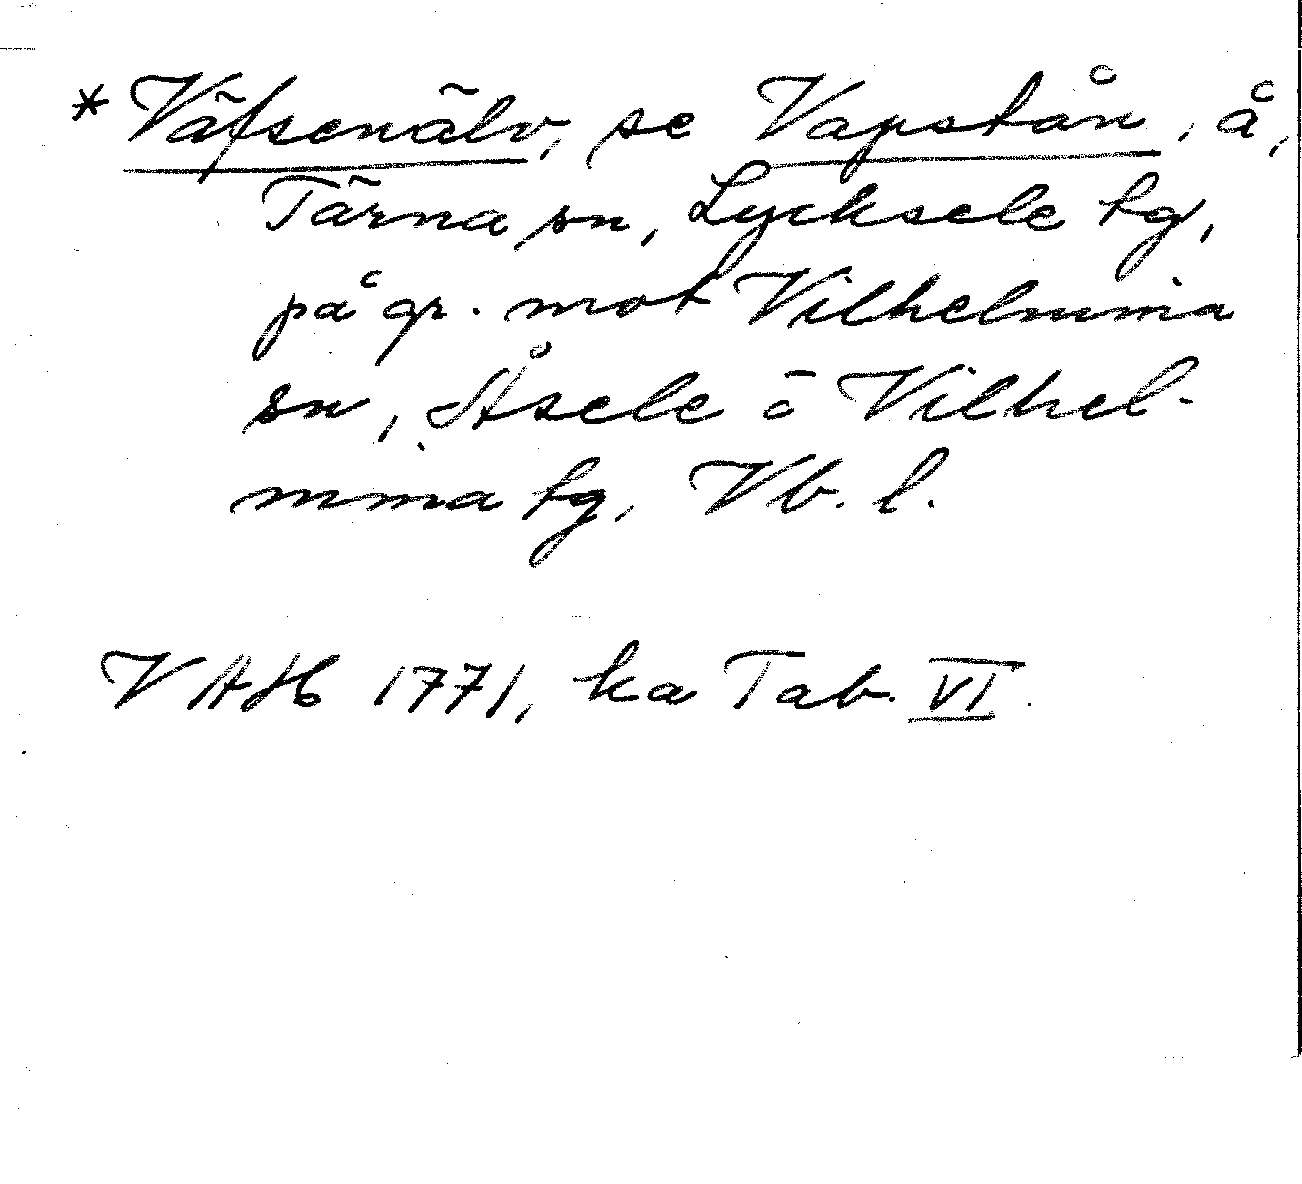 * Väfsenälv, se Vapstån, å,
Tärna sn, Lycksele tg,
på gr. mot Vilhelmina
sn, Åsele o Vilhel-
mina tg, Vb. l.
VAH 1771, ka Tab. VI.